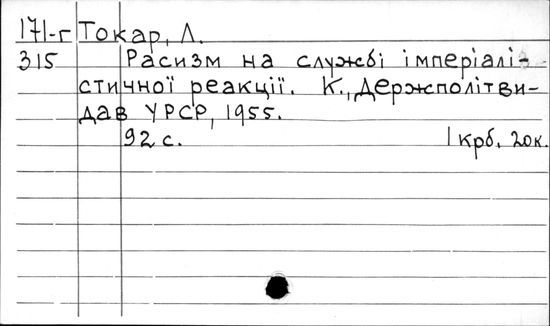 171-г Токар, Л.
315 Расизм на службі імперіалі-
стичної реакції. К., Держполітви-
дав УРСР, 1955.
92 с. 1 крб. 20к.